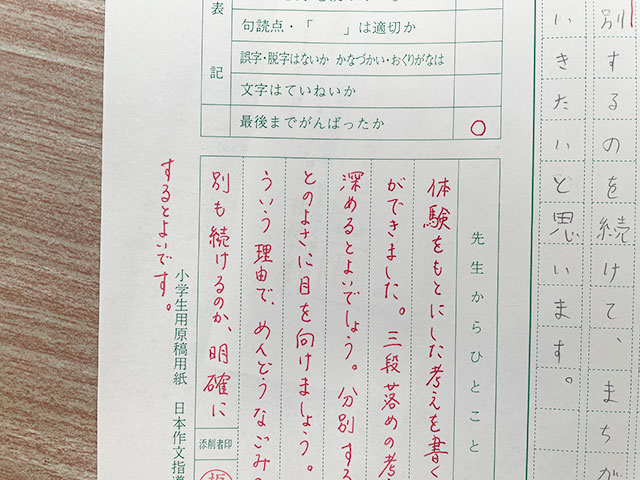 別するのを続けて、まちが
いきたいと思います。
表
記
句読点・「　　」は適切か
誤字・脱字はないか かなづかい・おくりがなは
文字はていねいか
最後までがんばったか
○
先生からひとこと
体験をもとにした考えを書く
ができました。三段落めの考
深めるとよいでしょう。分別する
とのよさに目を向けましょう。
ういう理由で、めんどうなごみの
別も続けるのか、明確に
するとよいです。
添削者印
小学生用原稿用紙　日本作文指導